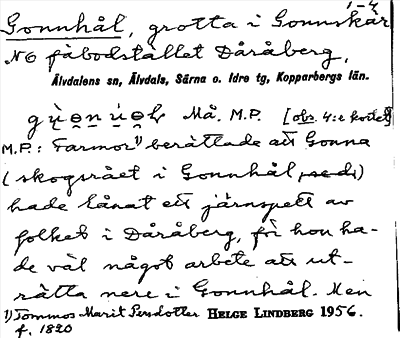 1-4
Gonnhål, grotta i Gonnskär
NO fäbodstället Dåråberg,
Älvdalens sn, Älvdals, Särna o. Idre tg, Kopparbergs län.
Må. M.P. [obs. 4:e kortet]
M.P.: Farmor¹⁾ berättade att Gonna
(skogsrået i Gonnhål,
hade lånat ett järnspett av
folket i Dåråberg, för hon ha-
de väl något arbete att ut-
rätta nere i Gonnhål. Men
1) Tommos Marit Persdotter HELGE LINDBERG 1956.
f. 1820